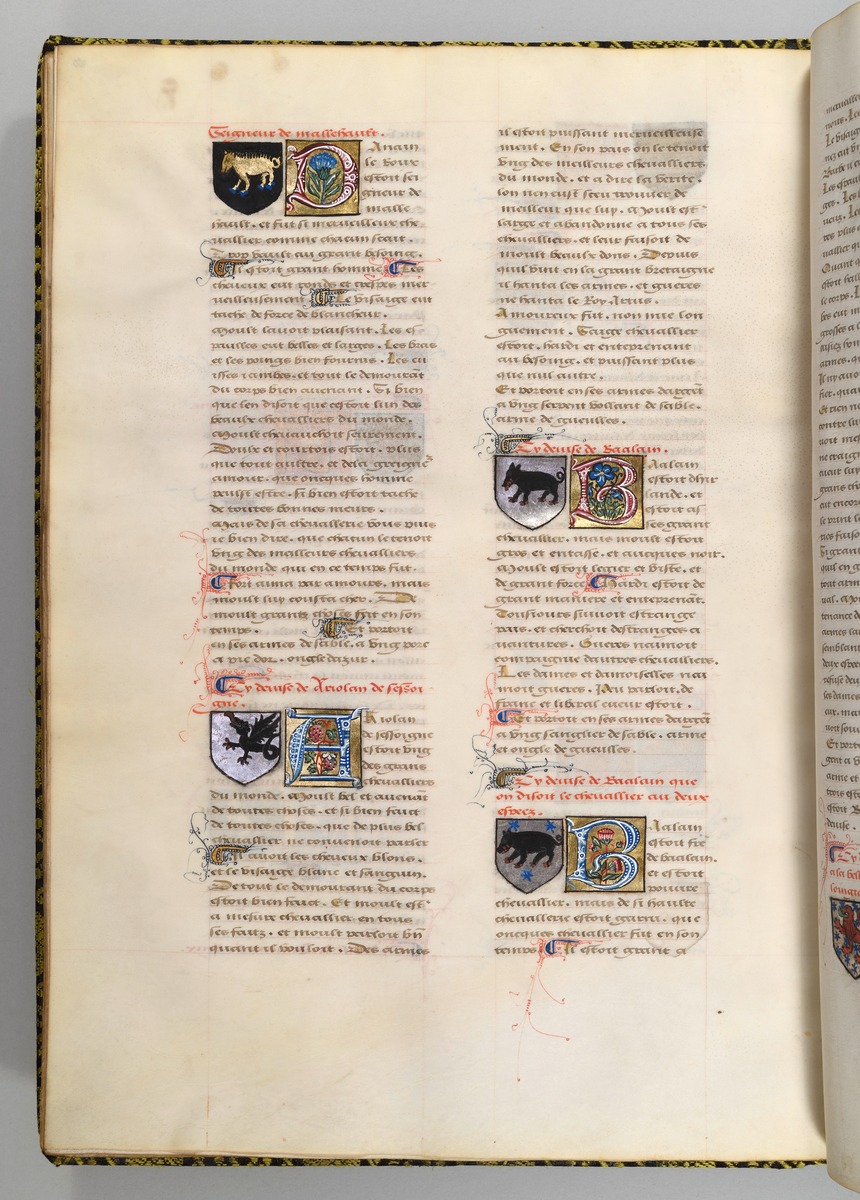 Seigneur de mallehault.
Danain
le Roux
estoit sei
gneur de
malle
hault. et fut si merveilleux che
vallier comme chacun scait.
Trop vault au grant besoing.
Il estoit grant homme Les
cheveux eut ronds et crespes mer
veilleusement Le visaige eut
tache de force de blancheur.
Moult savoit plaisant. Les es
paulles eut belles et larges. Les bras
et les poings bien fournis. Les cu
isses iambes. et tout le demourant
du corps bien avenant. Si bien
que len disoit que cestoit lun des
beaulx chevalliers du monde.
Moult chevauchoit seurement.
Doulx et courtois estoit. plus
que tout aultre. et de la greigne
amour. que oncques homme
peust estre. si bien estoit tache
de toutes bonnes meurs.
Mais de sa chevallerie vous puis
ie bien dire. que chacun le tenoit
ung des meilleurs chevalliers
du monde qui en ce temps fut.
Fort aima par amours. mais
moult luy cousta cher. De
moult grants choses fist en son
temps. Et portoit
en ses armes de sable. a ung porc
a pie dor. ongle dazur.
Cy devise de Ariolan de sesson
gne.
Ariolan
de sessoigne
estoit ung
des grans
chevalliers
du monde. Moult bel et avenant
de toutes choses. et si bien faict
de toutes choses. que de plus bel
chevallier ne convenoit parler
Il avoit les cheveux blons.
et le visaige blanc et sanguin.
De tout le demourant du corps
estoit bien faict. Et moult est
a mesure chevallier en tous
ses faitz. et moult parloit bn
quant il vouloit. Des armes
il estoit puissant merveilleuse
ment. En son pais on le tenoit
ung des meilleurs chevalliers
du monde. et a dire la verite.
lon nen eust sceu trouver de
meilleur que luy. Moult est
large et abandonne a tous ses
chevalliers. et leur faisoit de
moult beaulx dons. Depuis
quil vint en la grant bretaigne
il hanta les armes. et gueres
ne hanta le Roy Artus.
Amoureux fut. non mie lon
guement. Saige chevallier
estoit. hardi et enteprenant
au besoing. et puissant plus
que nul autre.
Et portoit en ses armes dargent
a ung serpent vollant de sable.
arme de gueulles.
Cy devise de Baalain.
Baalain
estoit dhir
lande. et
estoit as
ses grant
chevallier. mais moult estoit
gros et entasse. et aucques noir.
Moult estoit legier et viste. et
de grant force Hardi estoit de
grant maniere et enteprenant.
Tousiours suivoit estrange
pais. et cherchoit destranges a
vantures. Gueres naimoit
compaignie dautres chevalliers.
Les dames et damoiselles nai
moit gueres. Peu parloit. de
franc et liberal cueur estoit.
Et portoit en ses armes dargent
a ung sanglier de sable. arme
et ongle de gueulles.
Cy devise de Baalain que
on disoit le chevallier au deux
espees.
Balain
estoit fre
de baalain.
et estoit
pouvre
chevallier. mais de si haulte
chevallerie estoit garni. que
oncques chevallier fut en son
temps Il estoit grant g